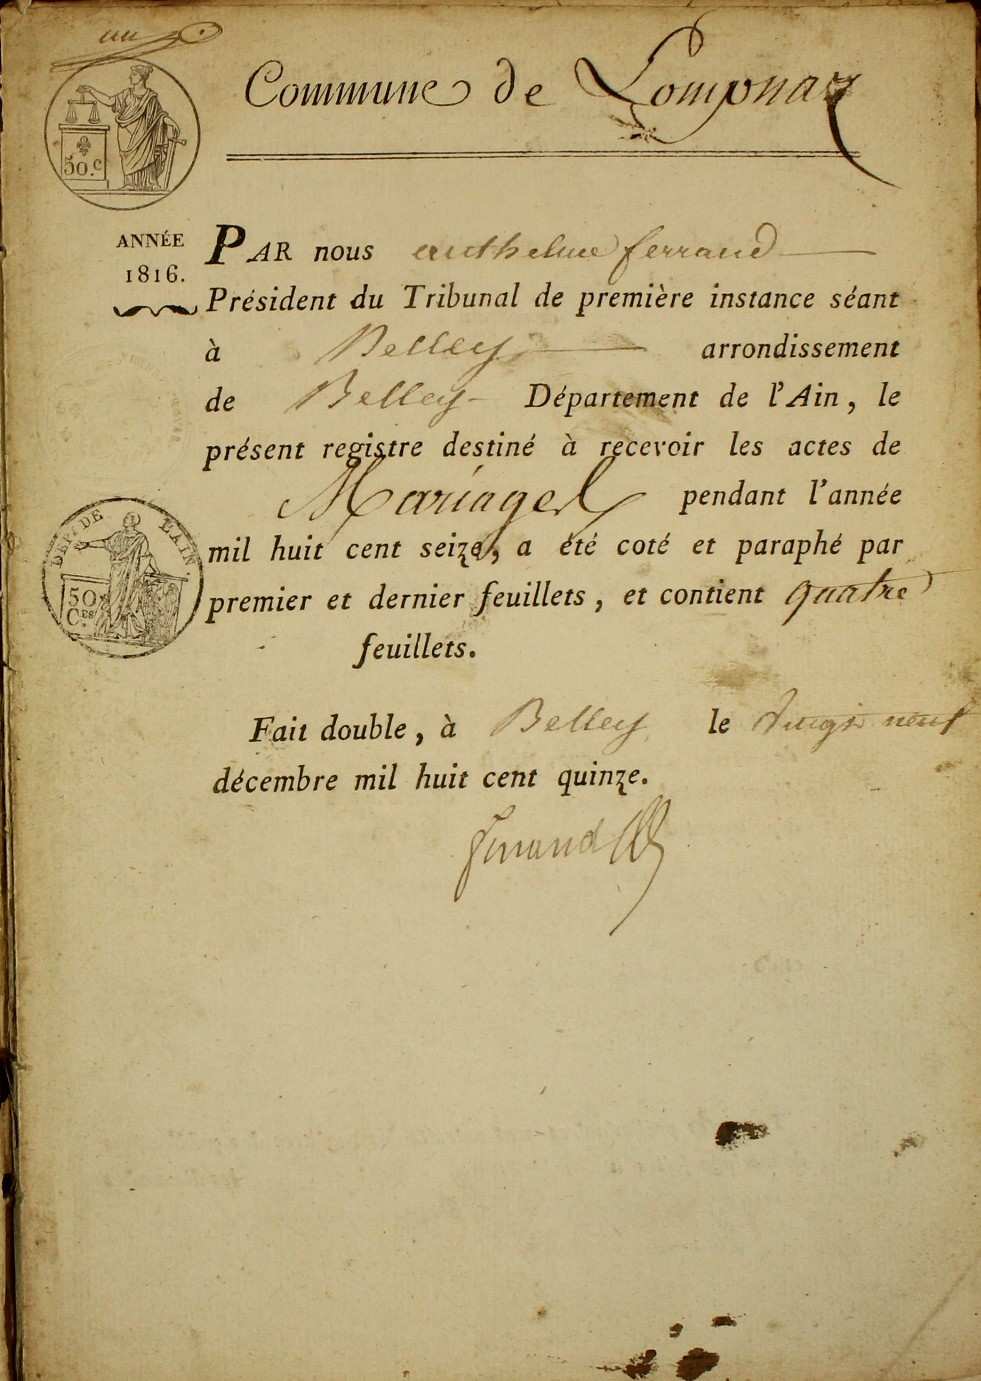 un
Commune de Lompnaz
50.c
ANNÉE
1816.
PAR nous anthelme ferrand
Président du Tribunal de première instance séant
à Belley arrondissement
de Belley Département de l'Ain, le
présent registre destiné à recevoir les actes de
Mariages pendant l'année
mil huit cent seize, a été coté et paraphé par
premier et dernier feuillets, et contient quatre
feuillets.
DEPT DE L'AIN.
50
Ces
Fait double, à Belley le vingt neuf
décembre mil huit cent quinze.
ferrand